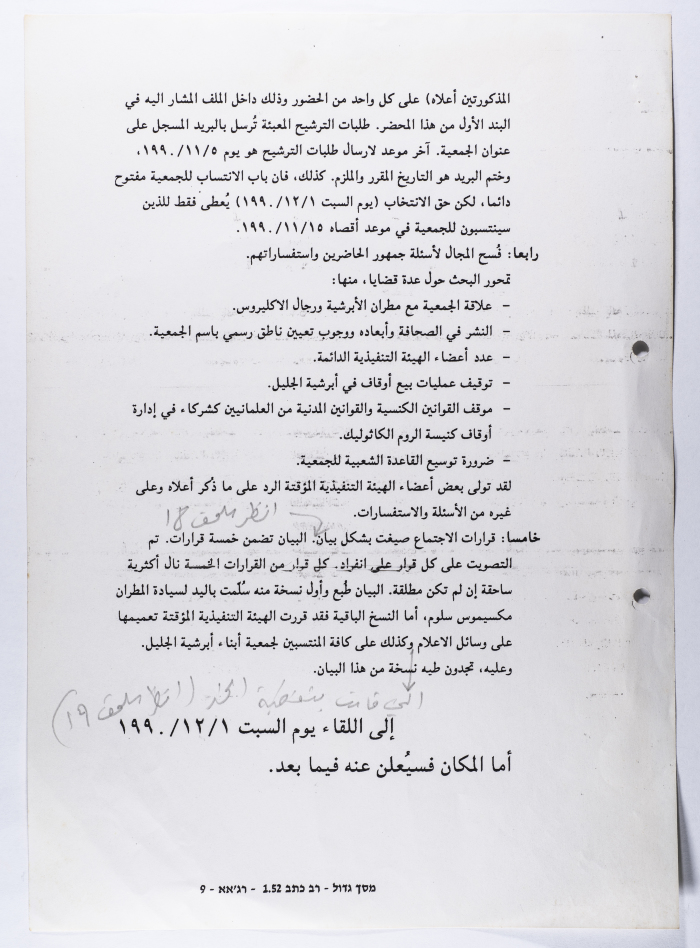 المذكورتين أعلاه) على كل واحد من الحضور وذلك داخل الملف المشار اليه في
البند الأول من هذا المحضر. طلبات الترشيح المعبئة تُرسل بالبريد المسجل على
عنوان الجمعية. آخر موعد لارسال طلبات الترشيح هو يوم ١٩٩٠/١١/٥،
وختم البريد هو التاريخ المقرر والملزم. كذلك، فان باب الانتساب للجمعية مفتوح
دائما، لكن حق الانتخاب (يوم السبت ١٩٩٠/١٢/١) يُعطى فقط للذين
سينتسبون للجمعية في موعد أقصاه ١٩٩٠/١١/١٥.
رابعا: فُسح المجال لأسئلة جمهور الحاضرين واستفساراتهم.
تمحور البحث حول عدة قضايا، منها:
– علاقة الجمعية مع مطران الأبرشية ورجال الاكليروس.
– النشر في الصحافة وأبعاده ووجوب تعيين ناطق رسمي باسم الجمعية.
– عدد أعضاء الهيئة التنفيذية الدائمة.
– توقيف عمليات بيع أوقاف في أبرشية الجليل.
– موقف القوانين الكنسية والقوانين المدنية من العلمانيين كشركاء في إدارة
أوقاف كنيسة الروم الكاثوليك.
– ضرورة توسيع القاعدة الشعبية للجمعية.
لقد تولى بعض أعضاء الهيئة التنفيذية المؤقتة الرد على ما ذُكر أعلاه وعلى
غيره من الأسئلة والاستفسارات.
انظر ملحق ١٨
خامسا: قرارات الاجتماع صيغت بشكل بيان. البيان تضمن خمسة قرارات. تم
التصويت على كل قرار على انفراد. كل قرار من القرارات الخمسة نال أكثرية
ساحقة إن لم تكن مطلقة. البيان طُبع وأول نسخة منه سُلّمت باليد لسيادة المطران
مكسيموس سلوم، أما النسخ الباقية فقد قررت الهيئة التنفيذية المؤقتة تعميمها
على وسائل الاعلام وكذلك على كافة المنتسبين لجمعية أبناء أبرشية الجليل.
وعليه، تجدون طيه نسخة من هذا البيان.
التي قامت بتغطية الخبر (انظر ملحق ١٩)
إلى اللقاء يوم السبت ١٩٩٠/١٢/١
أما المكان فسيُعلن عنه فيما بعد.
מסך גדול - רב כתב 1.52 - רג'אא - 9